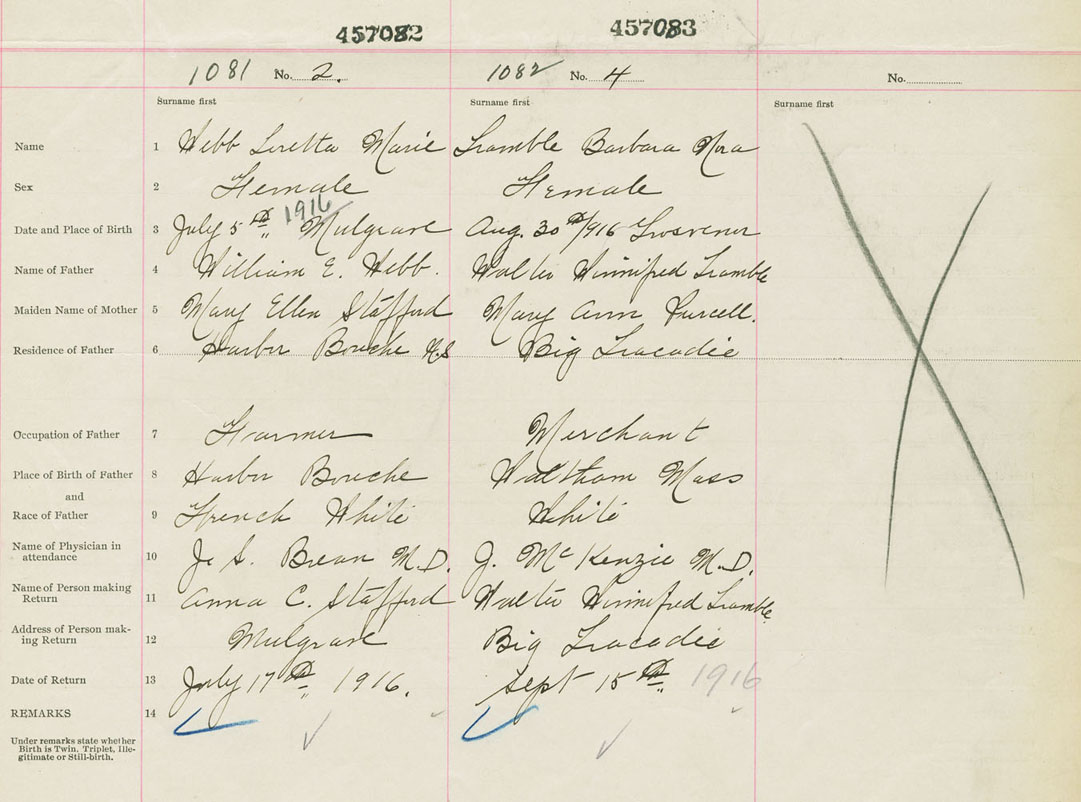 457082 457083
1081 No. 2. 1082 No. 4 No.
Surname first Surname first Surname first
Name 1 Webb Loretta Marie Tramble Barbara Nora
Sex 2 Female Female
Date and Place of Birth 3 July 5th 1916 Mulgrave Aug. 30th/916 Grosvenor
Name of Father 4 William E. Webb. Walter Winnifred Tramble
Maiden Name of Mother 5 Mary Ellen Stafford Mary Ann Purcell.
Residence of Father 6 Harbor Bouche N.S Big Tracadie
Occupation of Father 7 Farmer Merchant
Place of Birth of Father 8 Harbor Bouche Waltham Mass
and
Race of Father 9 French White White
Name of Physician in
attendance 10 J. S. Brean M.D. J. McKenzie M.D.
Name of Person making
Return 11 Anna C. Stafford Walter Winnifred Tramble
Address of Person mak-
ing Return 12 Mulgrave Big Tracadie
Date of Return 13 July 17th, 1916. Sept 15th 1916
REMARKS 14
Under remarks state whether
Birth is Twin, Triplet, Ille-
gitimate or Still-birth.